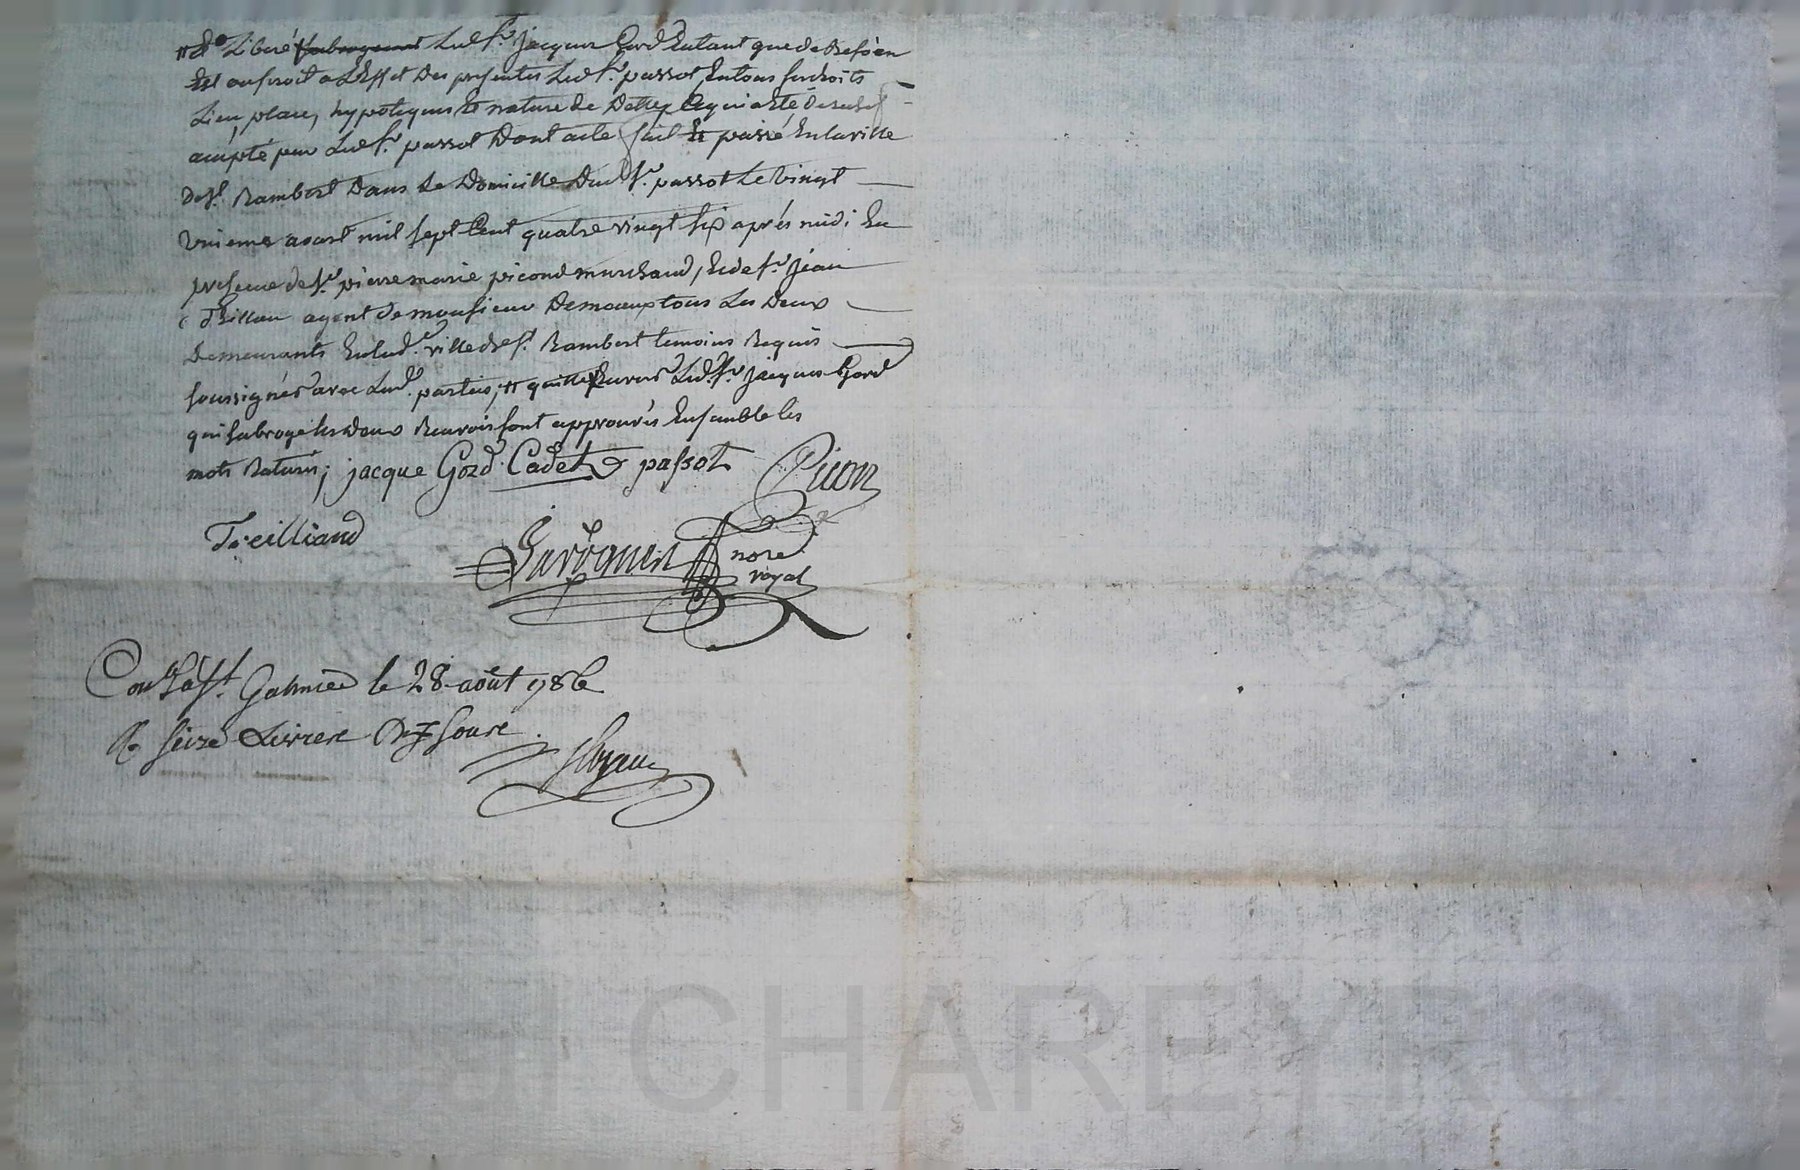 Libéré subrogeant Led. Sr. jacques Gord Entant que de Besoin
Est ou seroit a L'Effet Des presentes Led. Sr. passot Entous ses droits
Lieu, place, hypoteques & nature de Dettes Ce qui a Eté
acepté par Led. Sr. passot Dont acte fait Et passé En la ville
de St. Rambert Dans Le Domicille Dud. Sr. passot Le Vingt
Unieme aoust mil sept Cent quatre vingt six après midi En
presence de Sr. pierre marie picond marchand, & de Sr. jean
Trilland agent de monsieur Demeaux tous Les Deux
Demeurants En lad. ville de St. Rambert temoins Requis
soussignés avec Lesd. parties, # quitte Envers Led. Sr. jacques Gord
qui subroge les deux Renvois sont approuvés Ensemble les
mots Raturés; jacque Gord Cadet passot Picon
Treilliand
nore
royal
Con. à St. Galmier le 28 août 1786
R. seize Livres Dix sours.